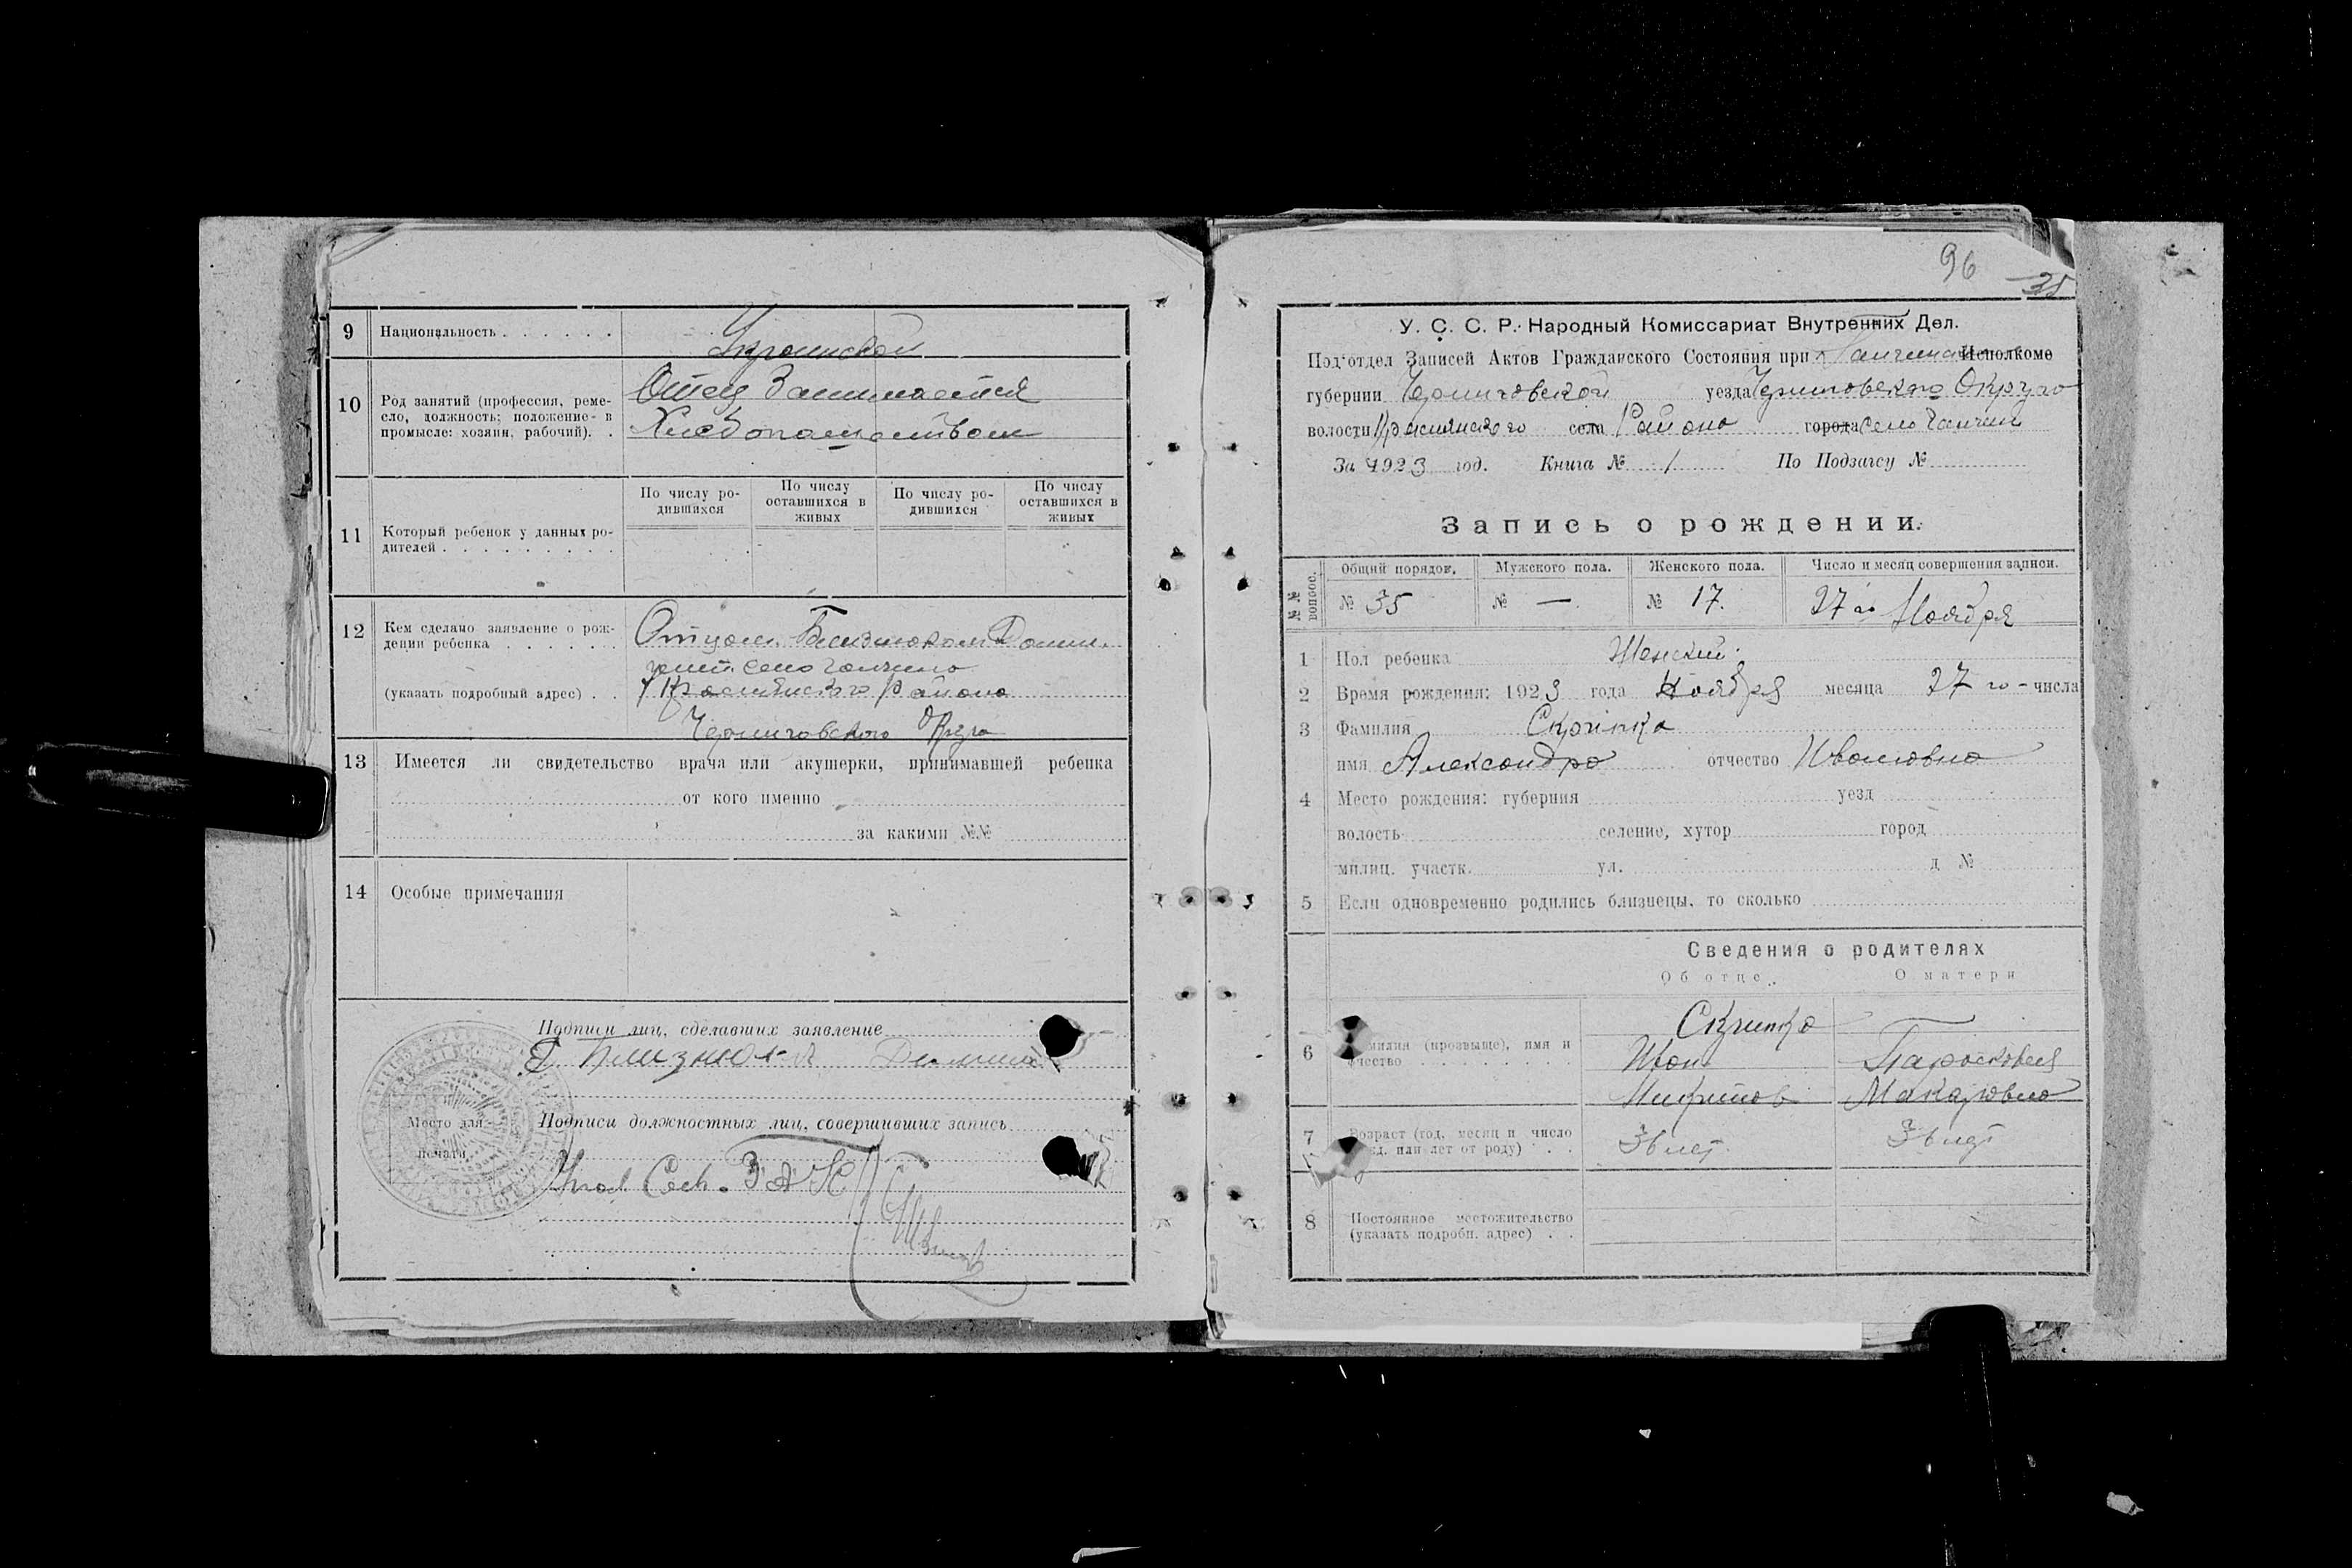 9 Национальность . . . . . .
Украинской
10 Род занятий (профессия, реме-
сло, должность; положение в
промысле: хозяин, рабочий). .
Отец Занимается
Хлебопашеством
11 Который ребенок у данных ро-
дителей . . . . . . . . .
По числу ро-
дившихся
По числу
оставшихся в
живых
По числу ро-
дившихся
По числу
оставшихся в
живых
12 Кем сделано заявление о рож-
дении ребенка . . . . . .
(указать подробный адрес) . .
Отцом Близнюком
село
района
Черниговского Округа
13 Имеется ли свидетельство врача или акушерки, принимавшей ребенка
от кого именно
за какими №№
14 Особые примечания
Подписи лиц, сделавших заявление
Близнюк
Место для
печати
Подписи должностных лиц, совершивших запись
96
35
У. С. С. Р. Народный Комиссариат Внутренних Дел.
Под'отдел Записей Актов Гражданского Состояния при Исполкоме
губернии Черниговской уезда Черниговского Округа
волости села Района города село
За 1923 год. Книга № 1 По Подзагсу №
Запись о рождении.
№№ вопрос.
Общий порядок. Мужского пола. Женского пола. Число и месяц совершения записи.
№ 35 № — № 17. 27 го Ноября
1 Пол ребенка Женский.
2 Время рождения: 1923 года Ноября месяца 27 го - числа
3 Фамилия Скрипка
имя Александра отчество Ивановна
4 Место рождения: губерния уезд
волость селение, хутор город
милиц. участк. ул. д №
5 Если одновременно родились близнецы, то сколько
Сведения о родителях
Об отце. О матери
6 милия (прозвище), имя и
чество . . . . . . . . .
Скрипка
Иван Парасковья
Макаровна
7 Возраст (год, месяц и число
жд. или лет от роду) . .
36 лет. 36 лет
8 Постоянное местожительство
(указать подробн. адрес) . .